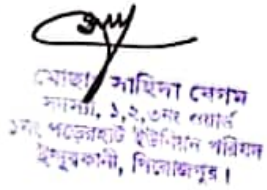 মোছাঃ সাহিদা বেগম
সদস্যা, ১,২,৩নং ওয়ার্ড
১নং পত্তাশীহাট ইউনিয়ন পরিষদ
ইন্দুরকানী, পিরোজপুর।